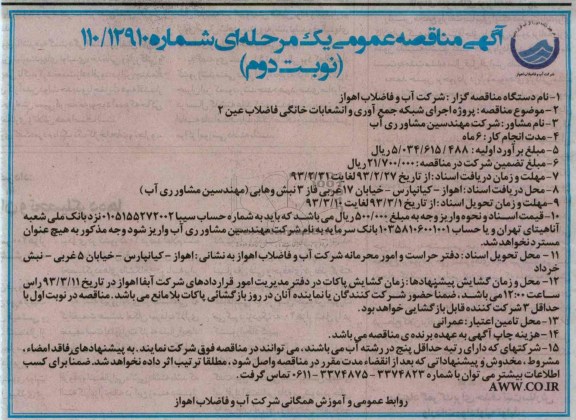 آگهی مناقصه عمومی یک مرحله‌ای شماره ۱۱۰/۱۳۹۱۰
(نوبت دوم)
شرکت آب و فاضلاب اهواز
۱- نام دستگاه مناقصه گزار : شرکت آب و فاضلاب اهواز
۲- موضوع مناقصه : پروژه اجرای شبکه جمع آوری و انشعابات خانگی فاضلاب عین ۲
۳- نام مشاور : شرکت مهندسین مشاور ری آب
۴- مدت انجام کار : ۶ ماه
۵- مبلغ برآورد اولیه : ۵/۰۳۴/۶۱۵/۴۸۸ ریال
۶- مبلغ تضمین شرکت در مناقصه : ۲۱/۷۰۰/۰۰۰ ریال
۷- مهلت و زمان دریافت اسناد : از تاریخ ۹۳/۲/۲۷ لغایت ۹۳/۲/۳۱
۸- محل دریافت اسناد : اهواز - کیانپارس - خیابان ۱۷ غربی فاز ۳ نبش وهابی (مهندسین مشاور ری آب )
۹- مهلت و زمان تحویل اسناد : از تاریخ ۹۳/۳/۱ لغایت ۹۳/۳/۱۰
۱۰- قیمت اسناد و نحوه واریز وجه به مبلغ ۵۰۰/۰۰۰ ریال می باشد که باید به شماره حساب سیبا ۰۱۰۵۱۵۵۲۷۲۰۰۲ نزد بانک ملی شعبه
آناهیتای تهران و یا حساب ۱۰۳۵۸۱۰۶۰۰۱۰۰۱ بانک سرمایه به نام شرکت مهندسین مشاور ری آب واریز شود وجه مذکور به هیچ عنوان
مسترد نخواهد شد.
۱۱- محل تحویل اسناد : دفتر حراست و امور محرمانه شرکت آب و فاضلاب اهواز به نشانی : اهواز - کیانپارس - خیابان ۵ غربی - نبش
خرداد
۱۲- محل و زمان گشایش پیشنهادها : زمان گشایش پاکات در دفتر مدیریت امور قراردادهای شرکت آبفا اهواز در تاریخ ۹۳/۳/۱۱ راس
ساعت ۱۲:۰۰ می باشد ، ضمنا حضور شرکت کنندگان یا نماینده آنان در روز بازگشائی پاکات بلامانع می باشد . مناقصه در نوبت اول با
حداقل ۳ شرکت کننده قابل بازگشایی خواهد بود .
۱۳- محل تامین اعتبار : عمرانی
۱۴- هزینه چاپ آگهی به عهده برنده ی مناقصه می باشد .
۱۵- شرکتهای که دارای رتبه حداقل پنج در رشته آب می باشند ، می توانند در مناقصه فوق شرکت نمایند . به پیشنهادهای فاقد امضاء ،
مشروط ، مخدوش و پیشنهاداتی که بعد از انقضاء مدت مقرر در مناقصه واصل شود ، مطلقا ترتیب اثر داده نخواهد شد . ضمنا برای کسب
اطلاعات بیشتر می توان با شماره ۳۳۷۴۸۲۳ - ۳۳۷۴۸۷۵ - ۰۶۱۱ تماس گرفت .
AWW.CO.IR
روابط عمومی و آموزش همگانی شرکت آب و فاضلاب اهواز